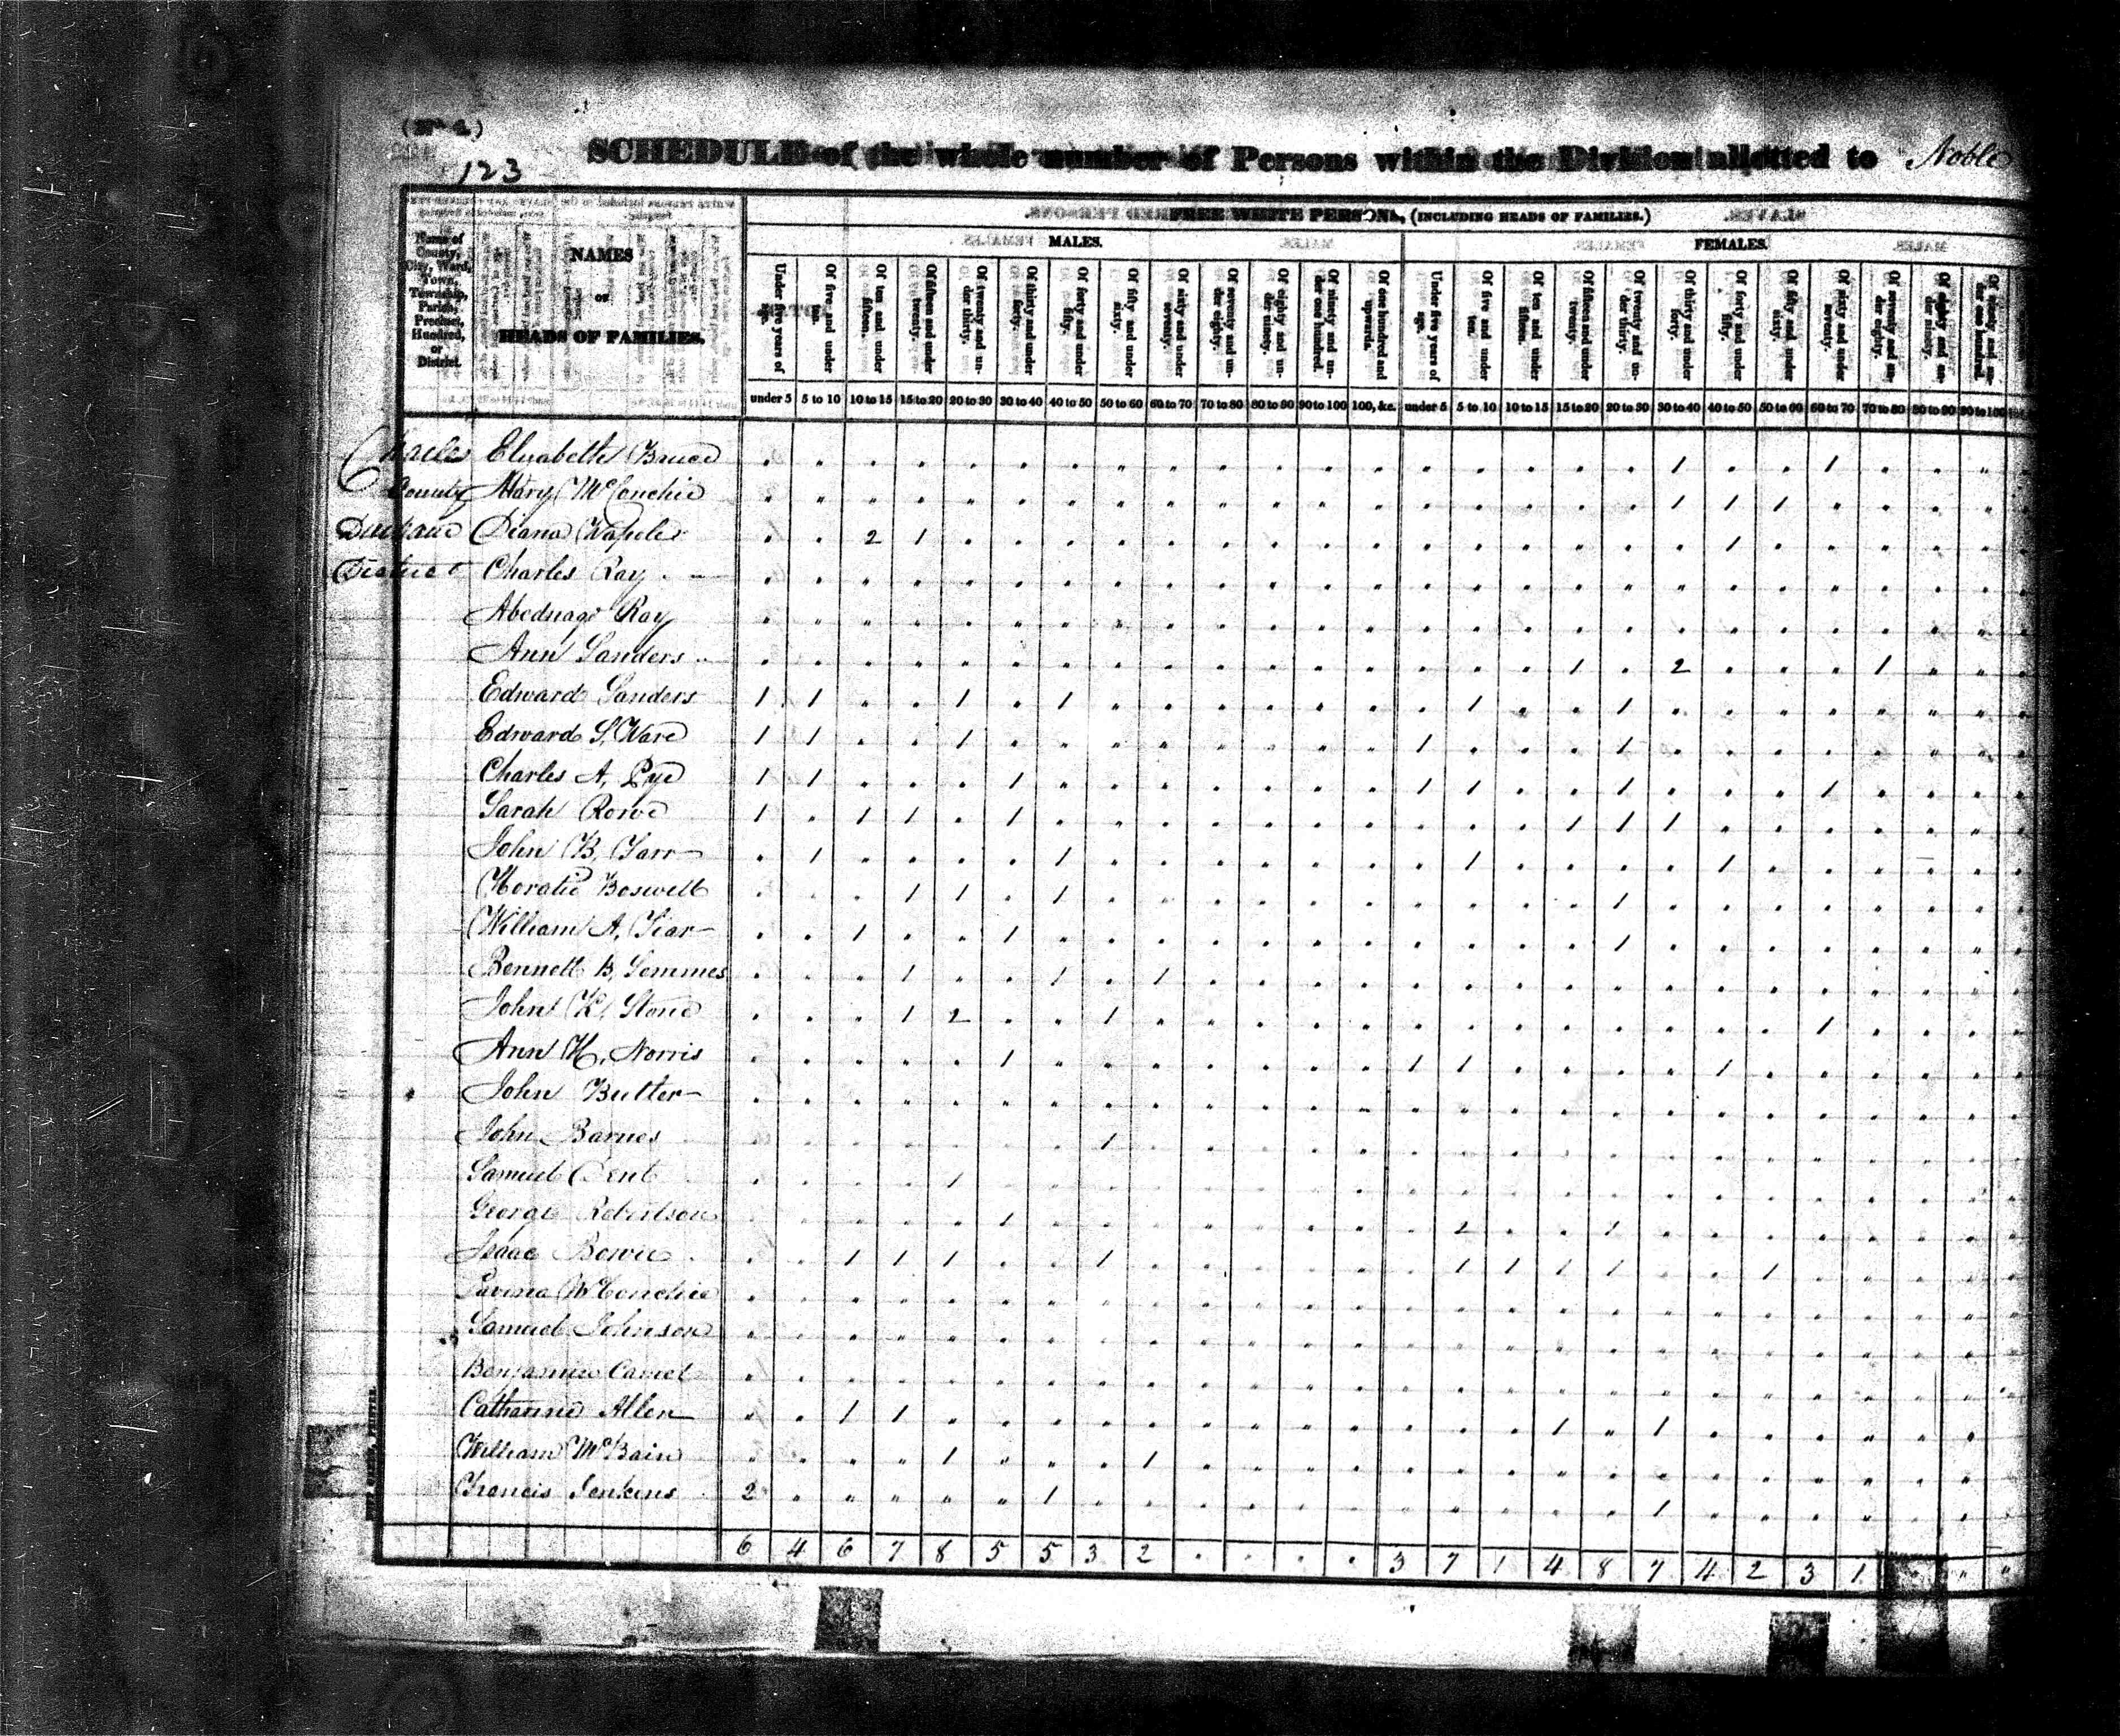 (No 4.)
123
SCHEDULE of the whole number of Persons within the Division allotted to Noble
FREE WHITE PERSONS, (INCLUDING HEADS OF FAMILIES.)
MALES. FEMALES.
Name of County, City, Ward, Town, Township, Parish, Precinct, Hundred, or District.
NAMES
OF
HEADS OF FAMILIES.
Under five years of age. Of five and under ten. Of ten and under fifteen. Of fifteen and under twenty. Of twenty and under thirty. Of thirty and under forty. Of forty and under fifty. Of fifty and under sixty. Of sixty and under seventy. Of seventy and under eighty. Of eighty and under ninety. Of ninety and under one hundred. Of one hundred and upwards. Under five years of age. Of five and under ten. Of ten and under fifteen. Of fifteen and under twenty. Of twenty and under thirty. Of thirty and under forty. Of forty and under fifty. Of fifty and under sixty. Of sixty and under seventy. Of seventy and under eighty. Of eighty and under ninety. Of ninety and under one hundred.
under 5 5 to 10 10 to 15 15 to 20 20 to 30 30 to 40 40 to 50 50 to 60 60 to 70 70 to 80 80 to 90 90 to 100 100, &c. under 5 5 to 10 10 to 15 15 to 20 20 to 30 30 to 40 40 to 50 50 to 60 60 to 70 70 to 80 80 to 90 90 to 100
Charles Elizabeth Bruce 1 1
County Mary McConchie 1 1 1
Diana 2 1 1
District Charles Ray
Abednago Ray
Ann Sanders 1 2 1
Edward Sanders 1 1 1 1 1 1
Edward S, Ware 1 1 1 1 1
Charles A, Pye 1 1 1 1 1 1 1
Sarah Rowe 1 1 1 1 1 1 1
John B, 1 1 1 1
Horatio Boswell 1 1 1 1
William A, 1 1 1
Bennett B, Semmes 1 1 1
John K, Stone 1 2 1 1
Ann H, Norris 1 1 1 1
John Butler
John Barnes 1
Samuel Dent 1
George Robertson 1 2 1
Isaac Bowie 1 1 1 1 1 1 1 1 1
McConchie
Samuel Johnson
Benjamin
Catharine Allen 1 1 1 1
William McBain 1 1
Francis Jenkins 2 1 1
6 4 6 7 8 5 5 3 2 3 7 1 4 8 7 4 2 3 1